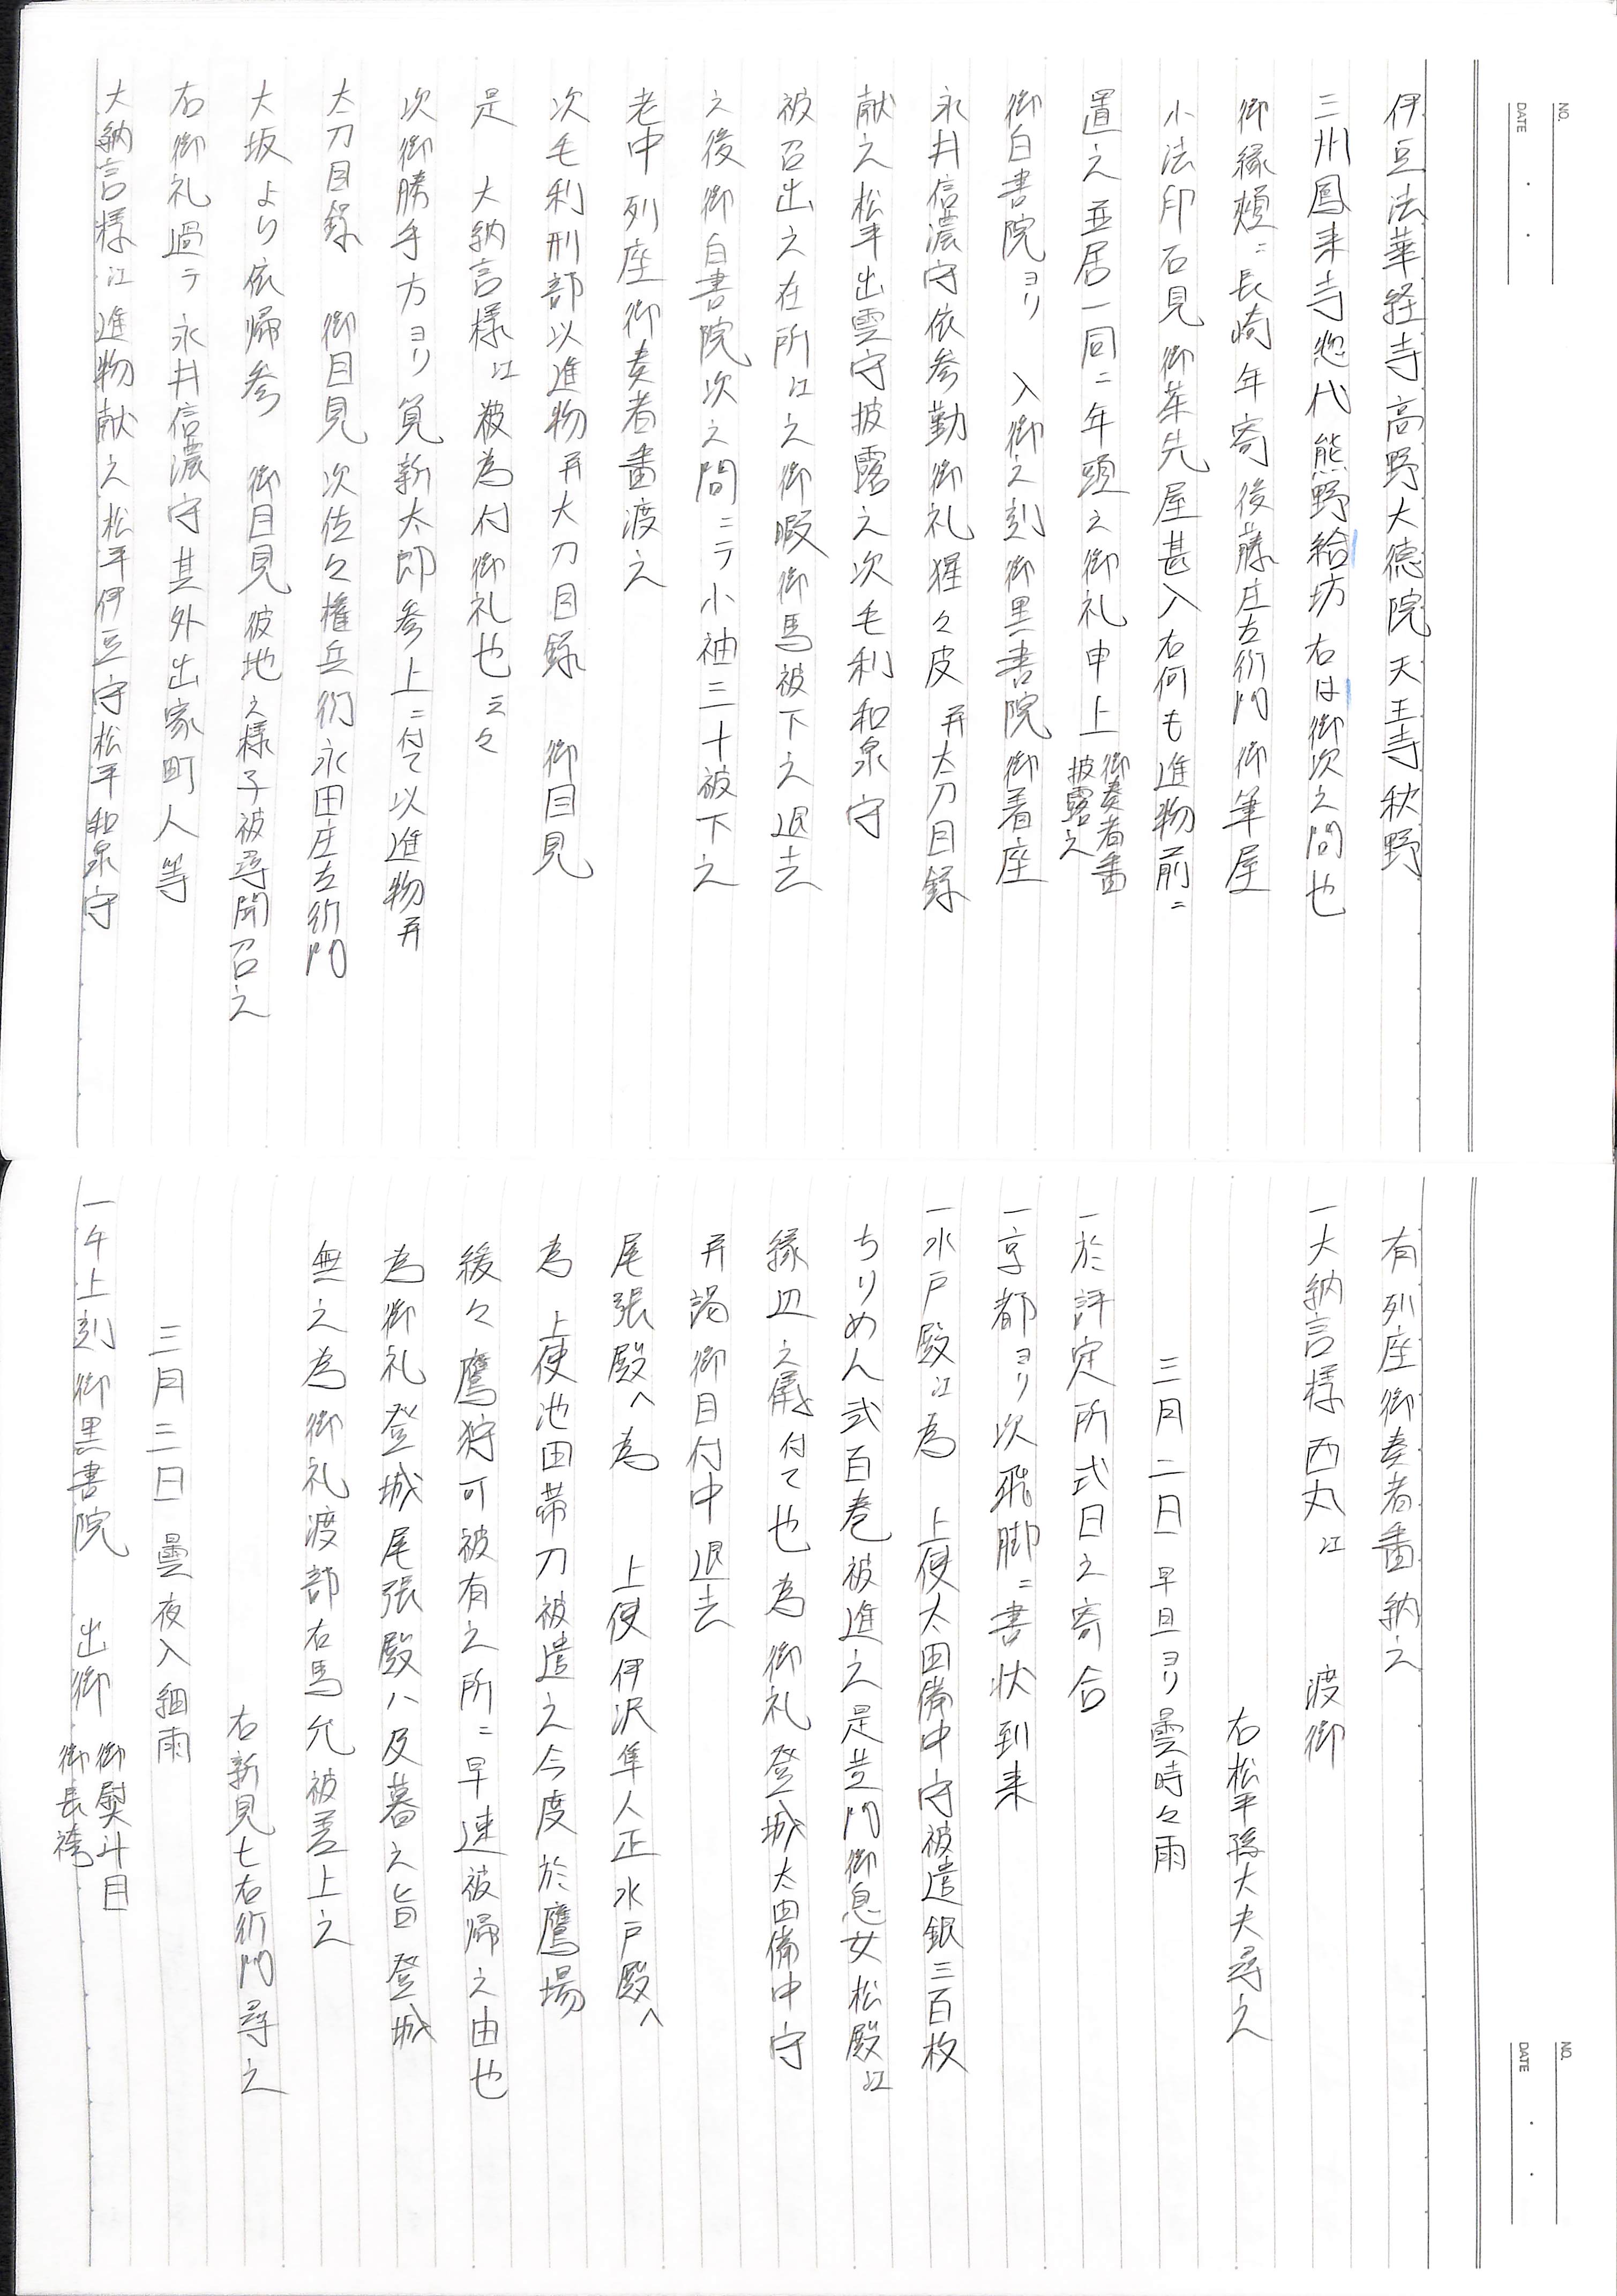 NO.
DATE
伊豆法華経寺高野大徳院天王寺秋野
三州鳳来寺惣代熊野給坊右は御次之間也
御縁頬ニ長崎年寄後藤庄左衛門御筆屋
小法印石見御茶先屋甚入右何も進物前ニ
置之並居一同ニ年頭之御礼申上御奏者番
披露之
御白書院ヨリ 入御之刻御黒書院御着座
永井信濃守依参勤御礼猩々皮并太刀目録
献之松平出雲守披露之次毛利和泉守
被召出之在所江之御暇御馬被下之退去
之後御白書院次之間ニテ小袖三十被下之
老中列座御奏者番渡之
次毛利刑部以進物并大刀目録 御目見
是 大納言様江被為付御礼也云々
次御勝手方ヨリ筧新太郎参上ニ付て以進物并
太刀目録 御目見次佐々権兵衛永田庄左衛門
大坂より依帰参 御目見彼地之様子被尋聞召之
右御礼過テ永井信濃守其外出家町人等
大納言様江進物献之松平伊豆守松平和泉守
NO.
DATE
有列座御奏者番納之
一大納言様西丸江 渡御
右松平孫大夫尋之
三月二日早旦ヨリ曇時々雨
一於評定所式日之寄合
一京都ヨリ次飛脚ニ書状到来
一水戸殿江為 上使太田備中守被遣銀三百枚
ちりめん弐百巻被進之是芝門御息女松殿江
縁辺之儀付て也為御礼登城太田備中守
并謁御目付中退去
尾張殿へ為 上使伊沢隼人正水戸殿へ
為 上使池田帯刀被遣之今度於鷹場
緩々鷹狩可被有之所ニ早速被帰之由也
為御礼登城尾張殿ハ及暮之旨登城
無之為御礼渡部右馬允被差上之
右新見七右衛門尋之
三月三日曇夜入細雨
一午上刻御黒書院 出御 御熨斗目
御長袴